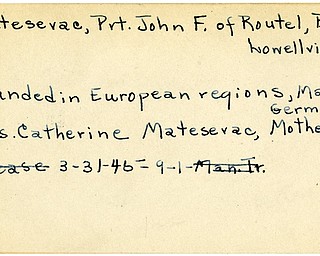 tesevac, Pvt. John F. of Route1,
Lowellvi
unded in European regions, Ma
Germ
s. Catherine Matesevac, Mothe
ease 3-31-45= 9-1- Man. Tr.